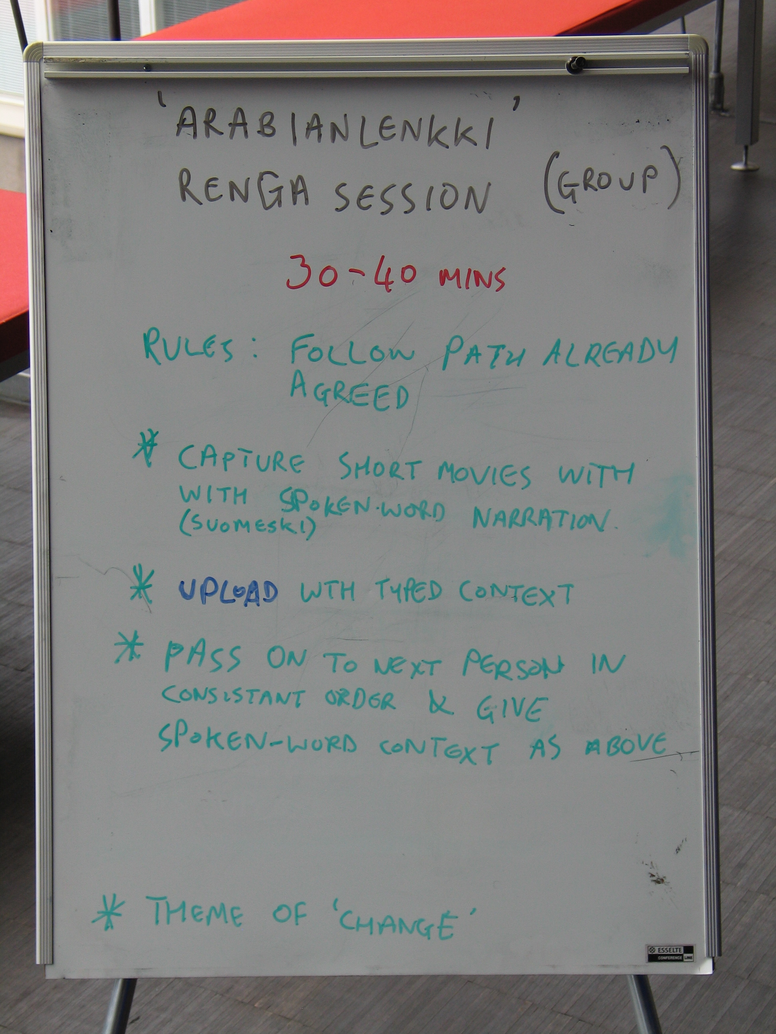 'ARABIANLENKKI'
RENGA SESSION (GROUP)
30-40 MINS
RULES: FOLLOW PATH ALREADY
AGREED
* CAPTURE SHORT MOVIES WITH
WITH SPOKEN-WORD NARRATION.
(SUOMESKI)
* UPLOAD WTH TYPED CONTEXT
* PASS ON TO NEXT PERSON IN
CONSISTANT ORDER & GIVE
SPOKEN-WORD CONTEXT AS ABOVE
* THEME OF 'CHANGE'
ESSELTE
CONFERENCE LINE